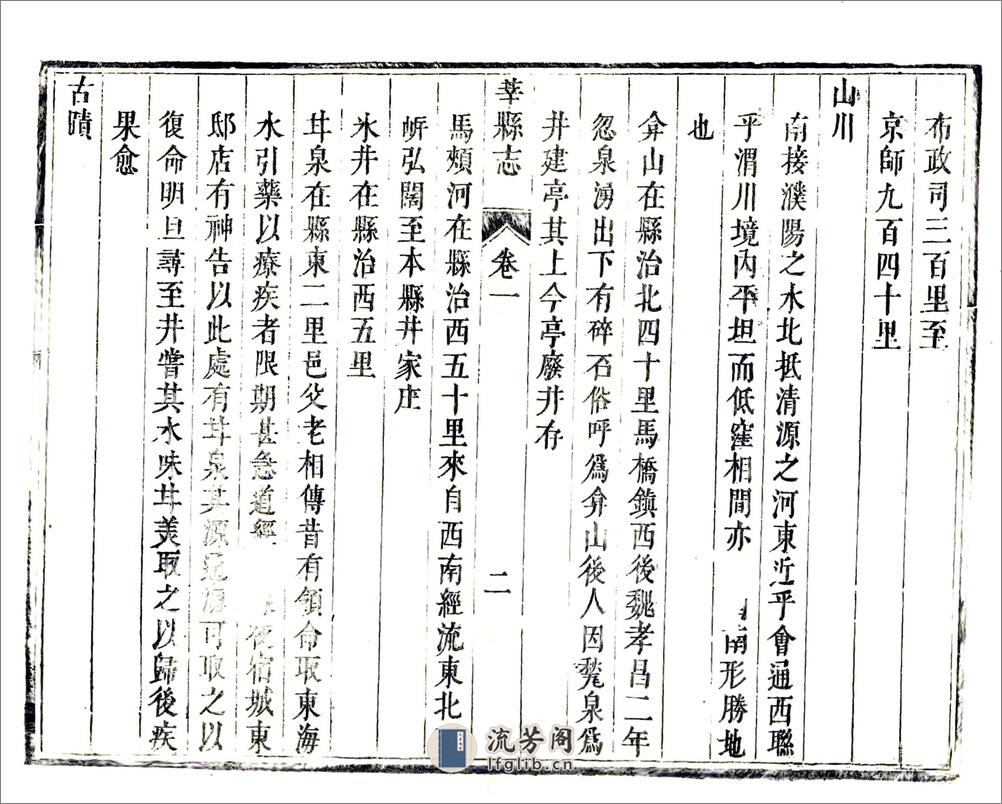 布政司三百里至
京師九百四十里
山川
南接濮陽之水北抵清源之河東近乎會通西聯
乎渭川境內平坦而低窪相間亦南形勝地
也
弇山在縣治北四十里馬橋鎮西後魏孝昌二年
忽泉湧出下有碎石俗呼爲弇山後人因甃泉爲
井建亭其上今亭廢井存
莘縣志 卷一 二
馬頰河在縣治西五十里來自西南經流東北
岍弘闊至本縣井家庄
氷井在縣治西五里
甘泉在縣東二里邑父老相傳昔有領命取東海
水引藥以療疾者限期甚急道經夜宿城東
邸店有神告以此處有甘泉其源可取之以
復命明旦尋至井嘗其水味甘美取之以歸後疾
果愈
古蹟
流芳阁
lfglib.cn